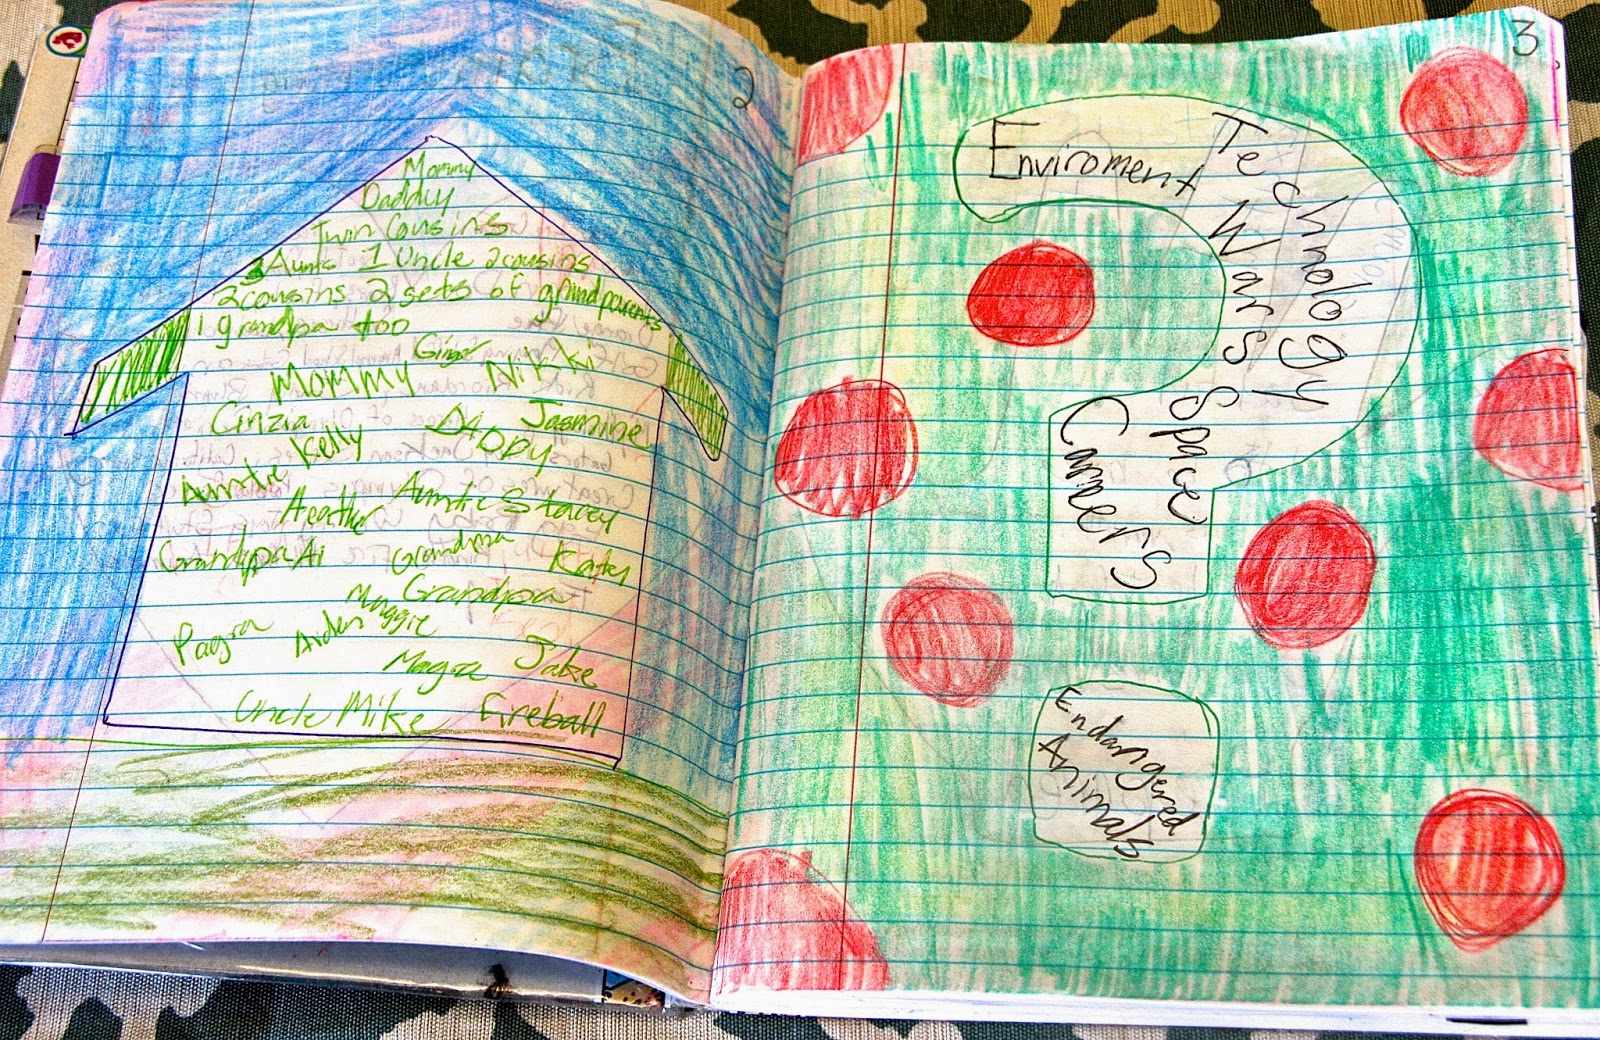 2
Mommy
Daddy
Twin Cousins
3 Aunts 1 Uncle 2 cousins
2 cousins 2 sets of grandparents
1 grandpa too
Ginger
Mommy Nikki
Cinzia DADDY Jasmine
Auntie Kelly
Heather Auntie Stacey
Grandpa Ai Grandma Katy
Grandpa
Aiden Maggie
Jake
Uncle Mike Fireball
3
Enviroment
Technology
Wars
Space
Careers
Endangered
Animals